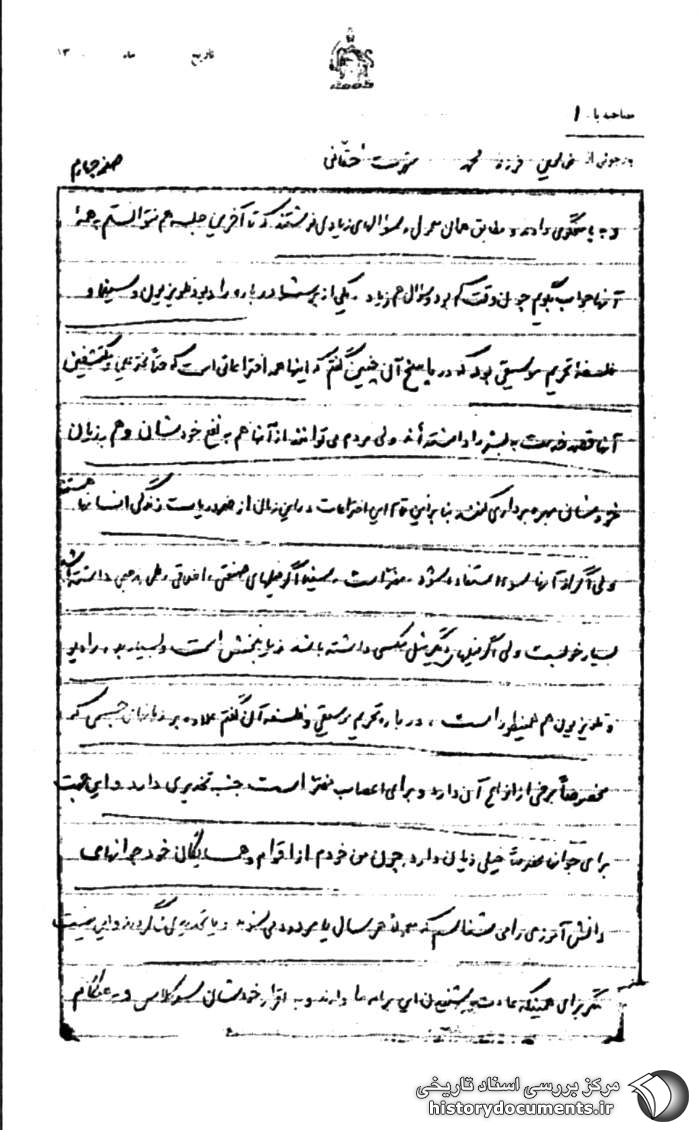 تاریخ ماه ۱۳
مصاحبه با ۱
بازجوئی از فرزند محمد شهرت حقانی صفحه چهارم
و به پاسخگوی دادند و مطابق همان معمول سؤالهای زیادی فرستادند که تا آخرین جلسه هم نتوانستم به همهٔ
آنها جواب بگویم چون وقت کم بود و سؤال هم زیاد یکی از پرسشها درباره رادیو و تلویزیون و سینما و
فلسفهٔ تحریم موسیقی بود که در پاسخ آن چنین گفتم که اینها همه اختراعاتی است که مکتشفین
آنها قصد خدمت به بشر را داشته‌اند ولی مردم می‌توانند از آنها هم به نفع خودشان و هم به زیان
خودشان بهره‌برداری کنند بنابراین تمام این اختراعات در این زمان از ضروریات زندگی انسانها هستند
ولی اگر از آنها سوء استفاده بشود مضر است سینما اگر فیلمهای صنعتی، اخلاقی، علمی، مذهبی داشته باشد
بسیار خوبست ولی اگر فیلمهای دیگری مثل سکسی داشته باشد زیان‌بخش است و بسیار بد، رادیو
و تلویزیون هم همینطور است، درباره تحریم موسیقی و فلسفه آن گفتم علاوه بر زیانهای جسمی که
مخصوصاً برخی از انواع آن دارد و برای اعصاب مضر است جنبه تخدیری دارد و این جهت
برای جوانها مخصوصاً خیلی زیان دارد چون من خودم از اقوام و همسایگان خود جوانهای
دانش‌آموزی را می‌شناسم که هر سال یا مردود می‌شوند و یا تجدیدی می‌آورند و این نیست
مگر برای همینکه عادت به شنیدن این برنامه‌ها دارند و به اقرار خودشان سر کلاس و به هنگام
مرکز بررسی اسناد تاریخی
historydocuments.ir